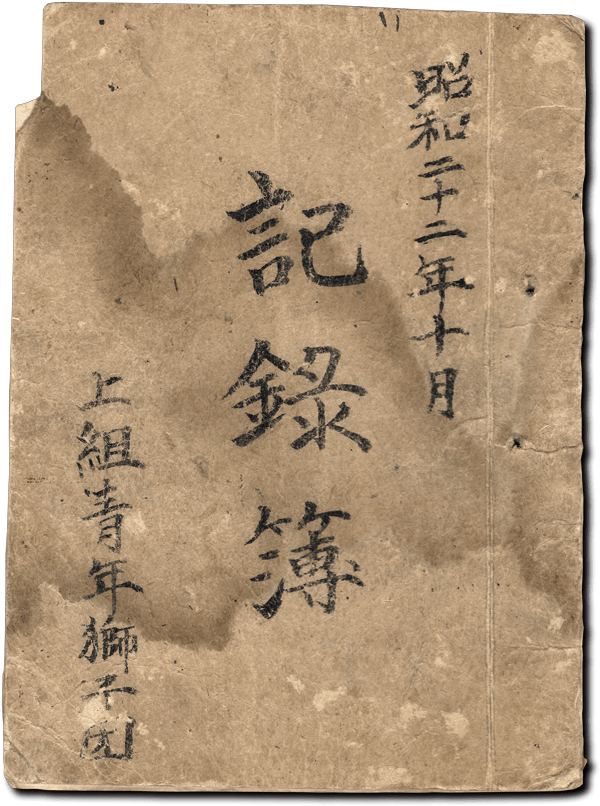 昭和二十二年十月
記録簿
上組青年獅子団